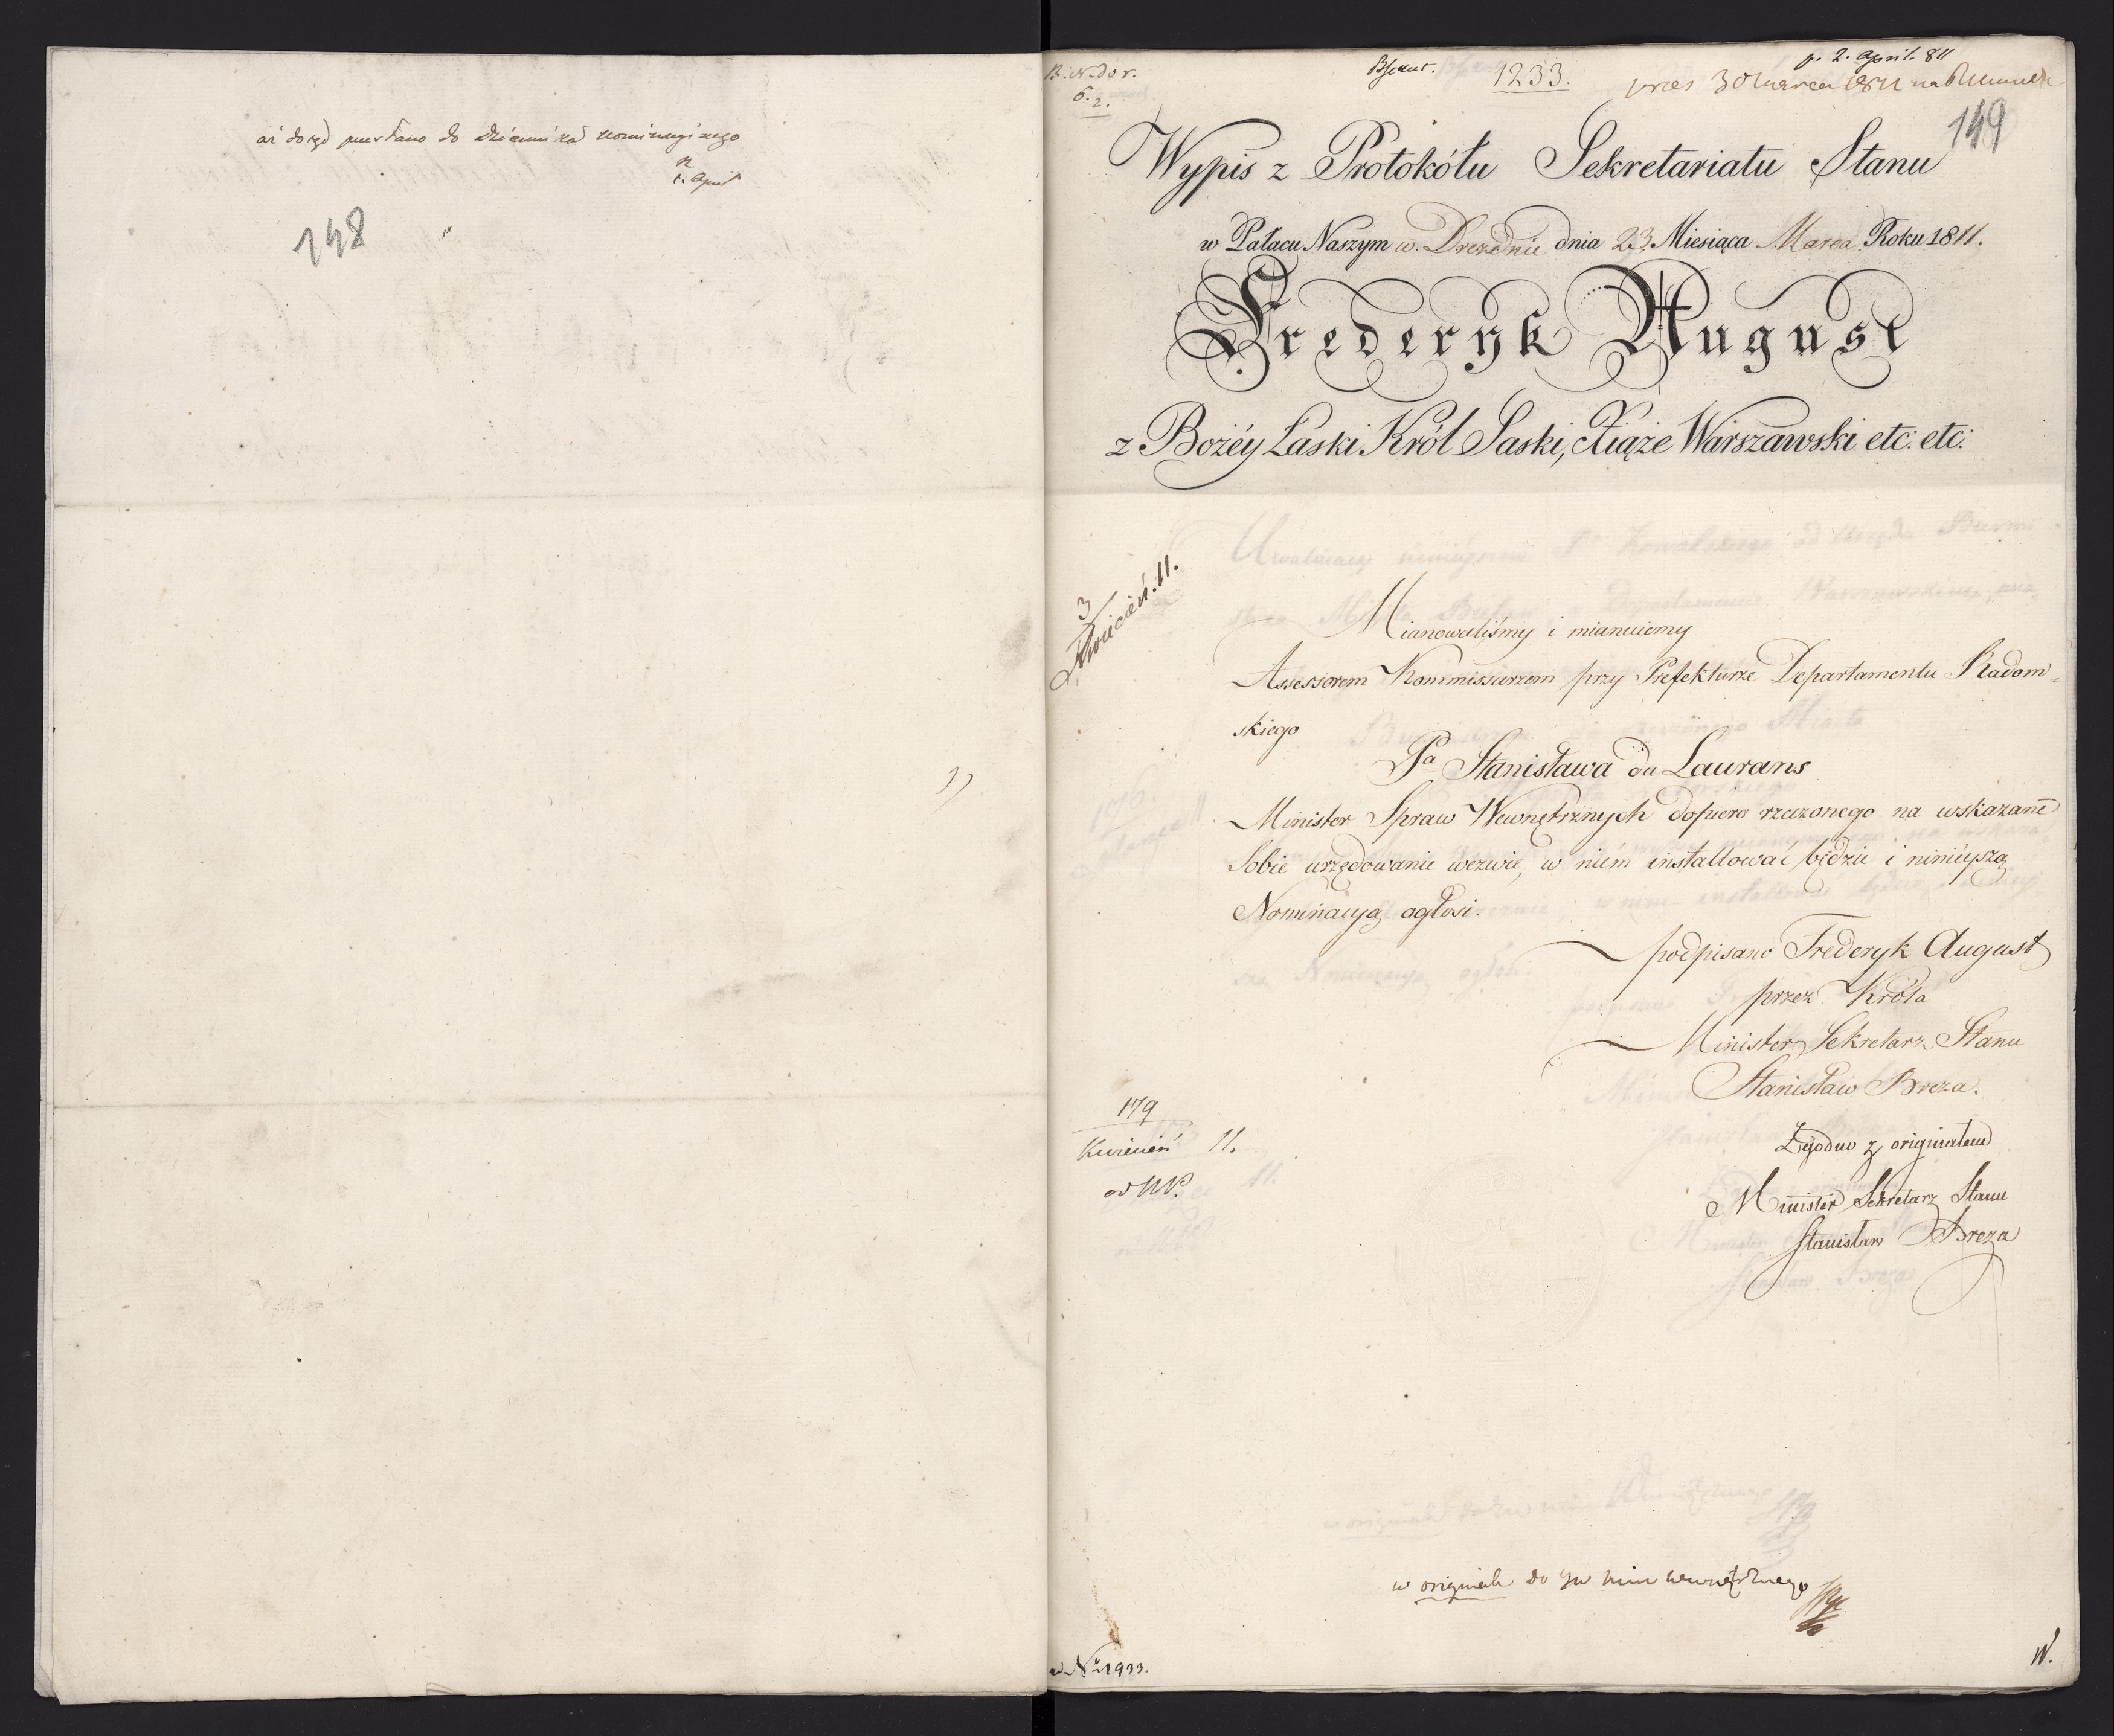 aż dotąd przesłano do dziennika nominacyjnego
1. April
148
1233.
p. 2. April. 811
pres 30 Marca 1811
149
Wypis z Protokółu Sekretariatu Stanu
w Pałacu Naszym w Dreznie dnia 23 Miesiąca Marca Roku 1811.
Frederyk August
z Bożéy Łaski Król Saski, Xiąże Warszawski etc: etc:
3
Kwiecień. 11.
Mianowaliśmy i mianuiemy
Assessorem Kommissarzem przy Prefekturze Departamentu Radom-
skiego
Pa Stanisława du Laurans
Minister Spraw Wewnętrznych dopiero rzeczonego na wskazane
Sobie urzędowanie wezwie, w niem installować będzie i ninieyszą
Nominacyą ogłosi.
podpisano Frederyk August
przez Króla
Minister Sekretarz Stanu
Stanisław Breza.
179
Kwiecień 11.
Zgodno z originałem
Minister Sekretarz Stanu
Stanisław Breza
w originale do
ad No 1933.
W.